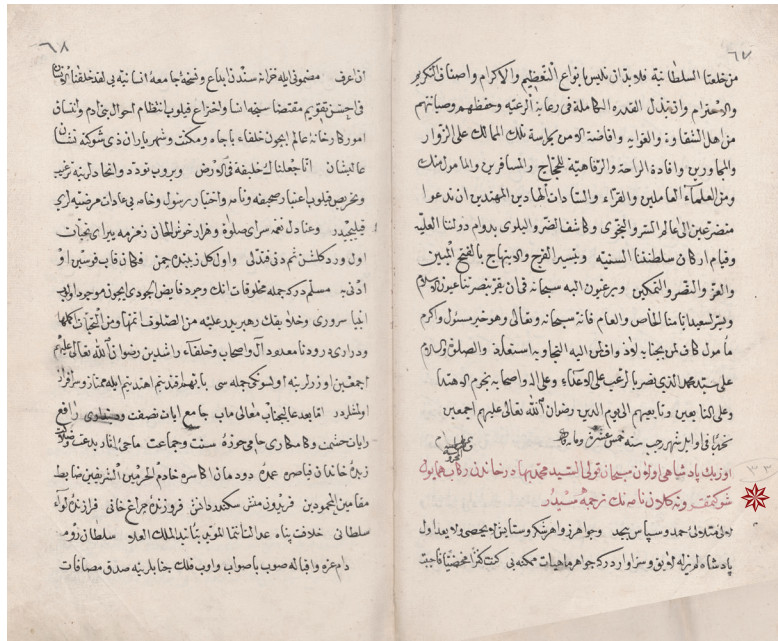 ٦٧
من خلعتا السلطانية فلا بد ان نلبس بانواع التعظيم والاكرام واصناف التكريم
والاحترام وان نبذل القدرة الكاملة فى رعاية الرعية وحفظهم وصيانتهم
من اهل الشقاوة والغواية وافاضة الامن بحراسة تلك الممالك على الزوار
والمجاورين وافادة الراحة والرفاهية للحجاج والمسافرين والمامول منك
ومن العلماء العاملين والقراء والسادات الهادين المهتدين ان تدعوا
متضرعين الى عالم السر والنجوى وكاشف الضر والبلوى بدوام دولتنا العلية
وقيام اركان سلطنتنا السنية وتيسير الفرج والابتهاج بالفتح المبين
والعز والنصر والتمكين ويرغبون اليه سبحانه فى ان يقر بنصرتنا عيون الاسلام
ويسر لسعيد ايامنا الخاص والعام فانه سبحانه وتعالى وهو خير مسئول واكرم
مامول كاف لمن بجنابه لاذ وافلس اليه التجا وبه استعاذ والصلوة والسلام
على سيد محمد الذى نصر بالرعب على الاعداء وعلى اله واصحابه نجوم الاهتدا
وعلى التابعين وتابعيهم الى يوم الدين رضوان الله تعالى عليهم اجمعين
تحريرا فى اوايل شهر رجب سنه خمس عشر ومايه
٣٣
اوزبك پادشاهى اولان سبحان قولى السيد محمد بهادر خاندن ركاب همايون
شوكتمقرونه كلان نامه نك ترجمه سيدر
حمد وسپاس بيحد وجواهر زواهر شكر وستايش لايحصى ولايعد اول
پادشاه لم يزله لايق وسزاواردركه جواهر ماهيات ممكنه يى كنت كنزا مخفيا فاحببت
٦٨
ان اعرف مضمونى ايله خزانه سندن ابداع ونسخه جامعه انسانيه يى لقد خلقنا الانسان
فى احسن تقويم مقتضاسنجه انشا واختراع قيلوب انتظام احوال بنى ادم واتساق
امور كارخانه عالم ايچون خلفاء باجاه ومكنت وشهرياران ذى شوكته نشان
عاليشان انا جعلناك خليفة فى الارض ويروب تودد واتحادلرينه ترغيب
وتحريص قيلوب اعتبار صحيفه ونامه واختيار رسول وخامه يى عادات مرضيه لرى
قيلمشدر وعنادل نغمه سراى صلوة وهزار خوش الحان زمزمه پيراى تحيات
اول ورد كلشن ثم دنى فتدلى واول كل زيبنده چمن فكان قاب قوسين او
ادنى يه مسلمدركه جمله مخلوقات انك وجود فايض الجودى ايچون موجود اولوب
انبيا سرورى وخلايقك رهبريدر عليه من الصلوات اتمها ومن التحيات اكملها
ودرارى درود نامعدود آل واصحاب وخلفاء راشدين رضوان الله تعالى عليهم
اجمعين اوزرلرينه اولسونكه جمله سى بايهم اقتديتم اهتديتم ايله ممتاز وسرافراز
اولمشلردر اما بعد عاليجناب معالى ماب جامع ايات نصفت رافع
رايات حشمت وكامكارى حامى حوزه سنت وجماعت ماحى اثار بدعت وضلالت
زبده خاندان قياصره عمده دودمان اكاسره خادم الحرمين الشريفين ضابط
مقامين المحمودين فريدون منش سكندر دانش فروزنده چراغ خانى فرازنده لواء
سلطانى خلافت پناه عدالت انتما المؤيد بتائيد الملك العلا سلطان روم
دام عزه واقباله صوب باصواب واوب فلك جنابلرينه صدق مصافات